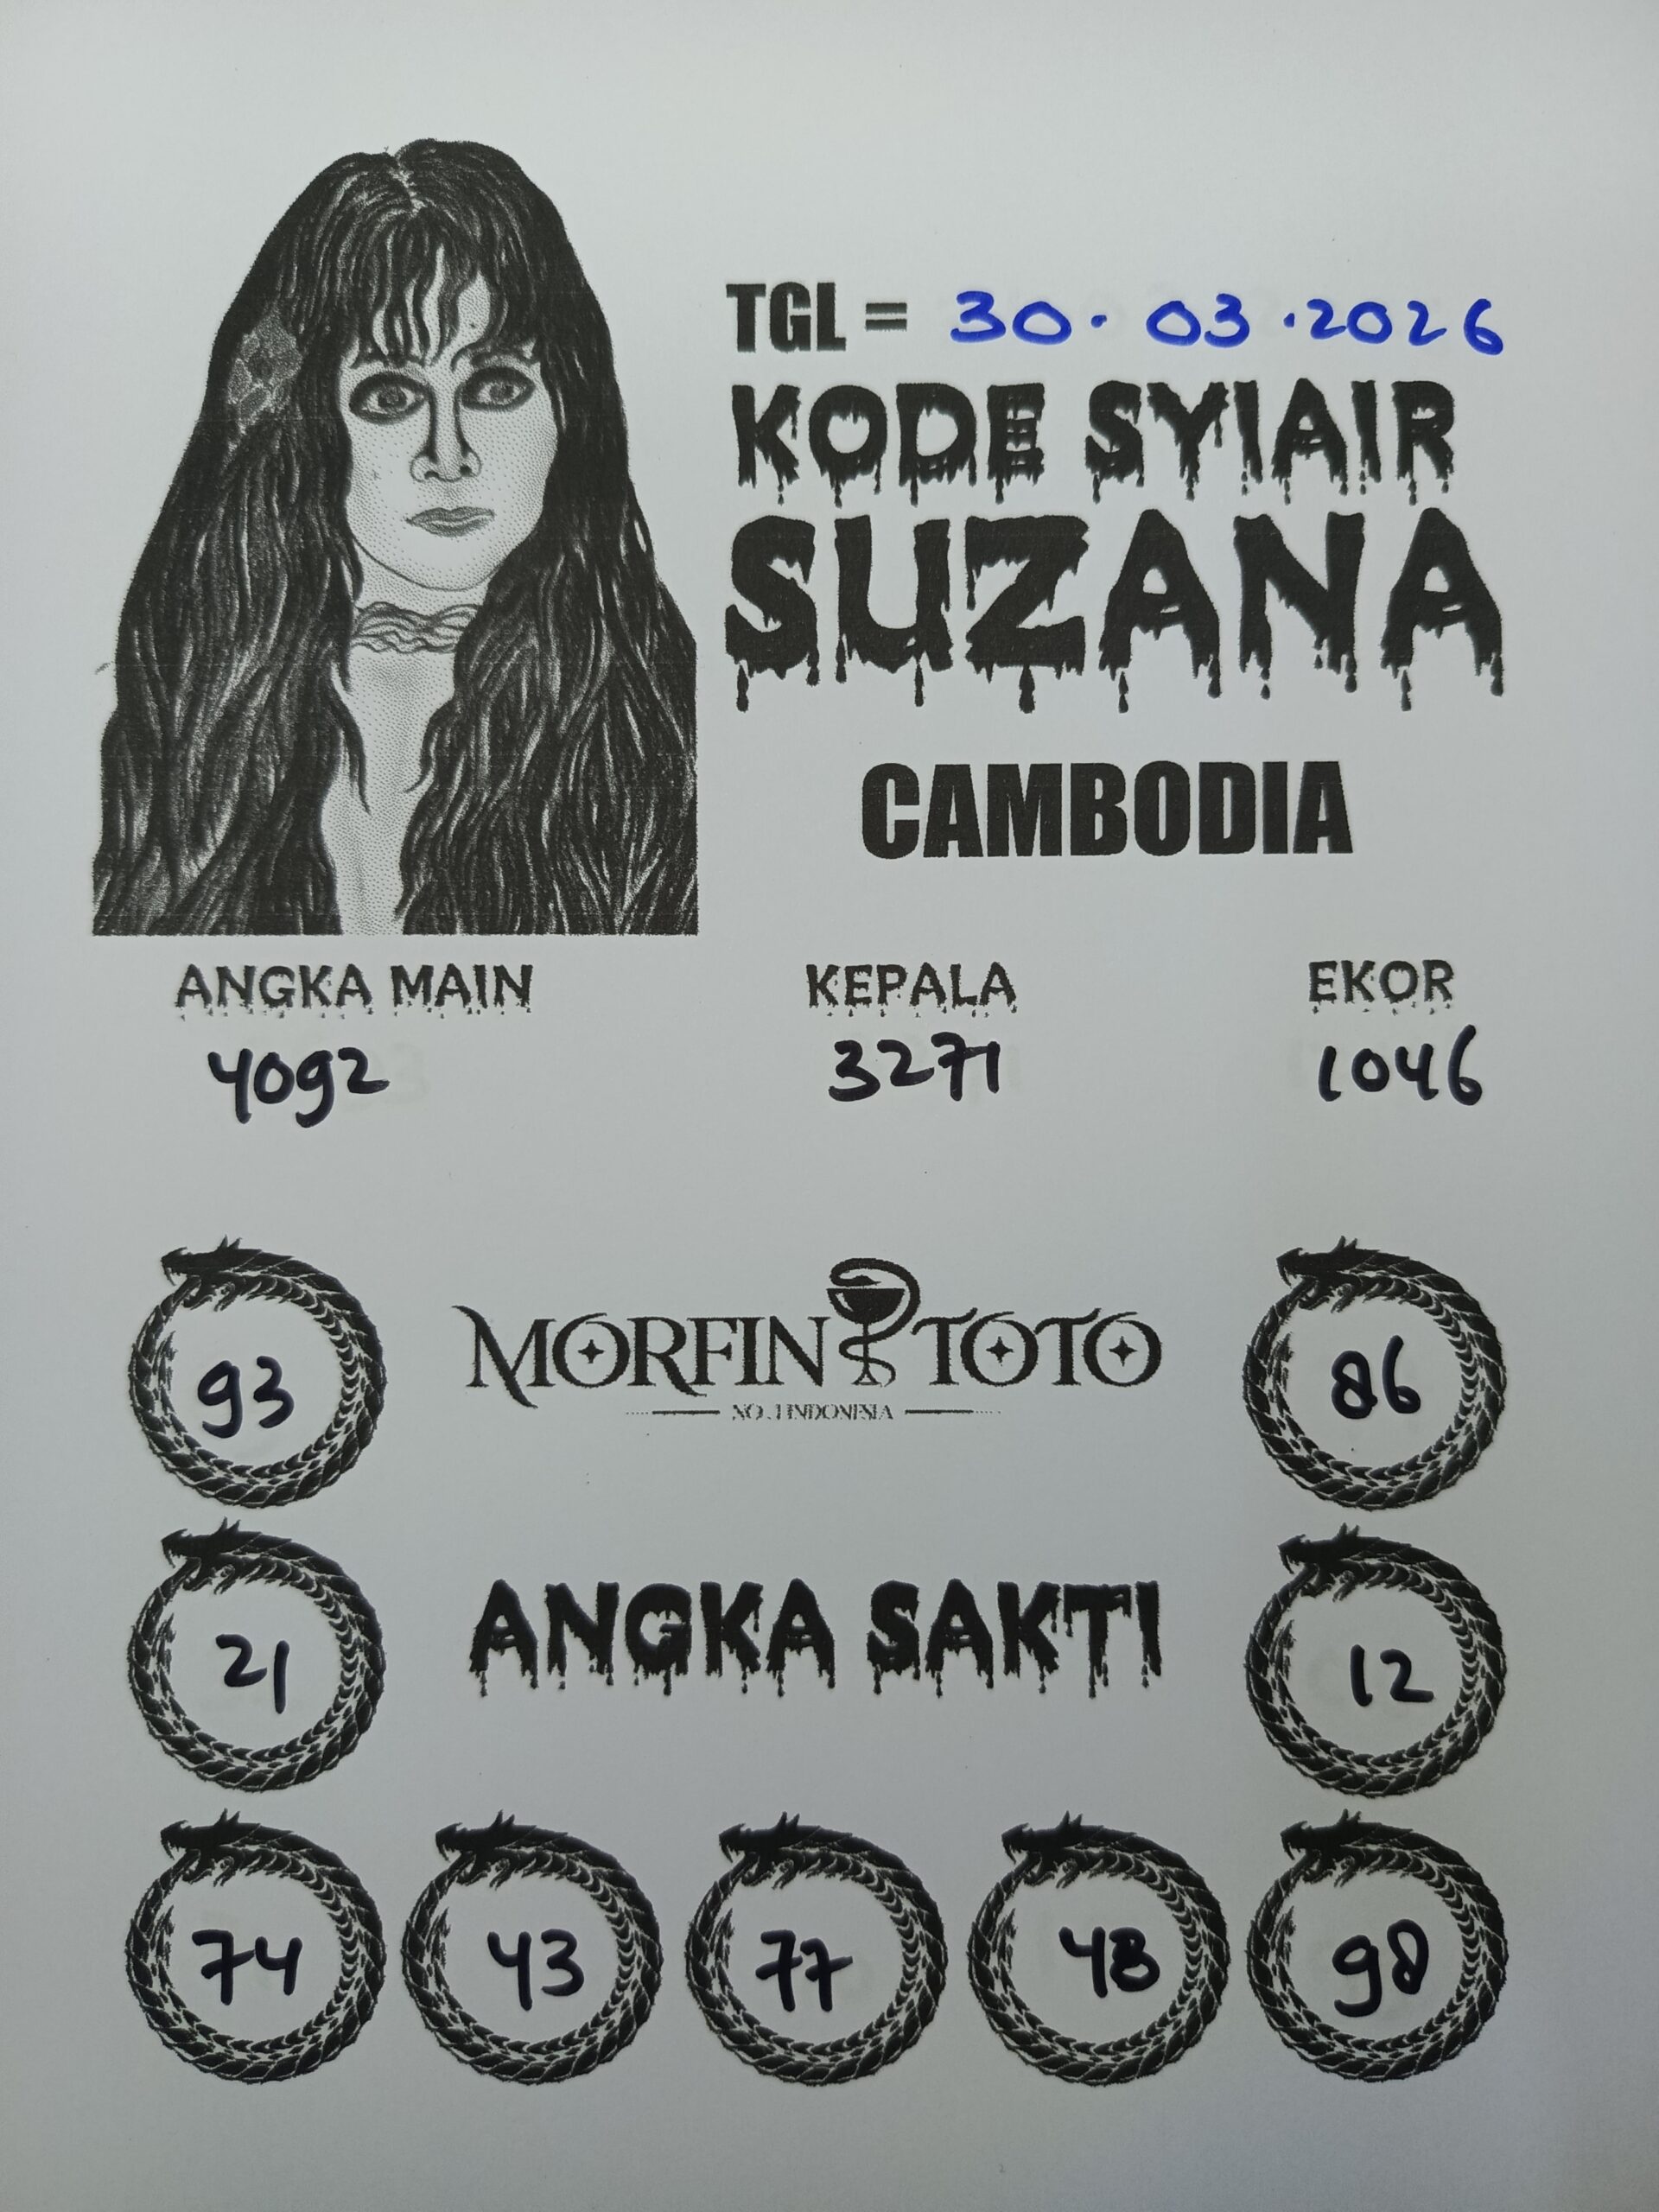 TGL = 30.03.2026
KODE SYIAIR
SUZANA
CAMBODIA
ANGKA MAIN KEPALA EKOR
4092 3271 1046
93 MORFIN TOTO 86
NO.1 INDONESIA
21 ANGKA SAKTI 12
74 43 77 48 98